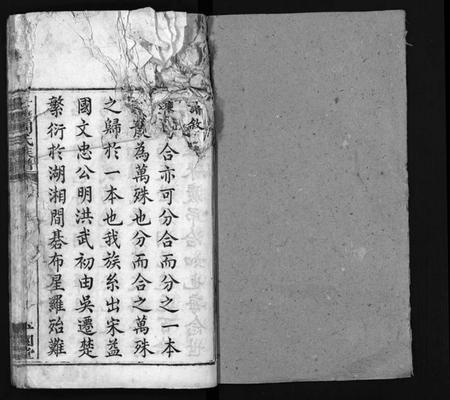 譜敘
合亦可分合而分之一本
散為萬殊也分而合之萬殊
之歸於一本也我族系出宋益
國文忠公明洪武初由吳遷楚
繁衍於湖湘間碁布星羅殆難